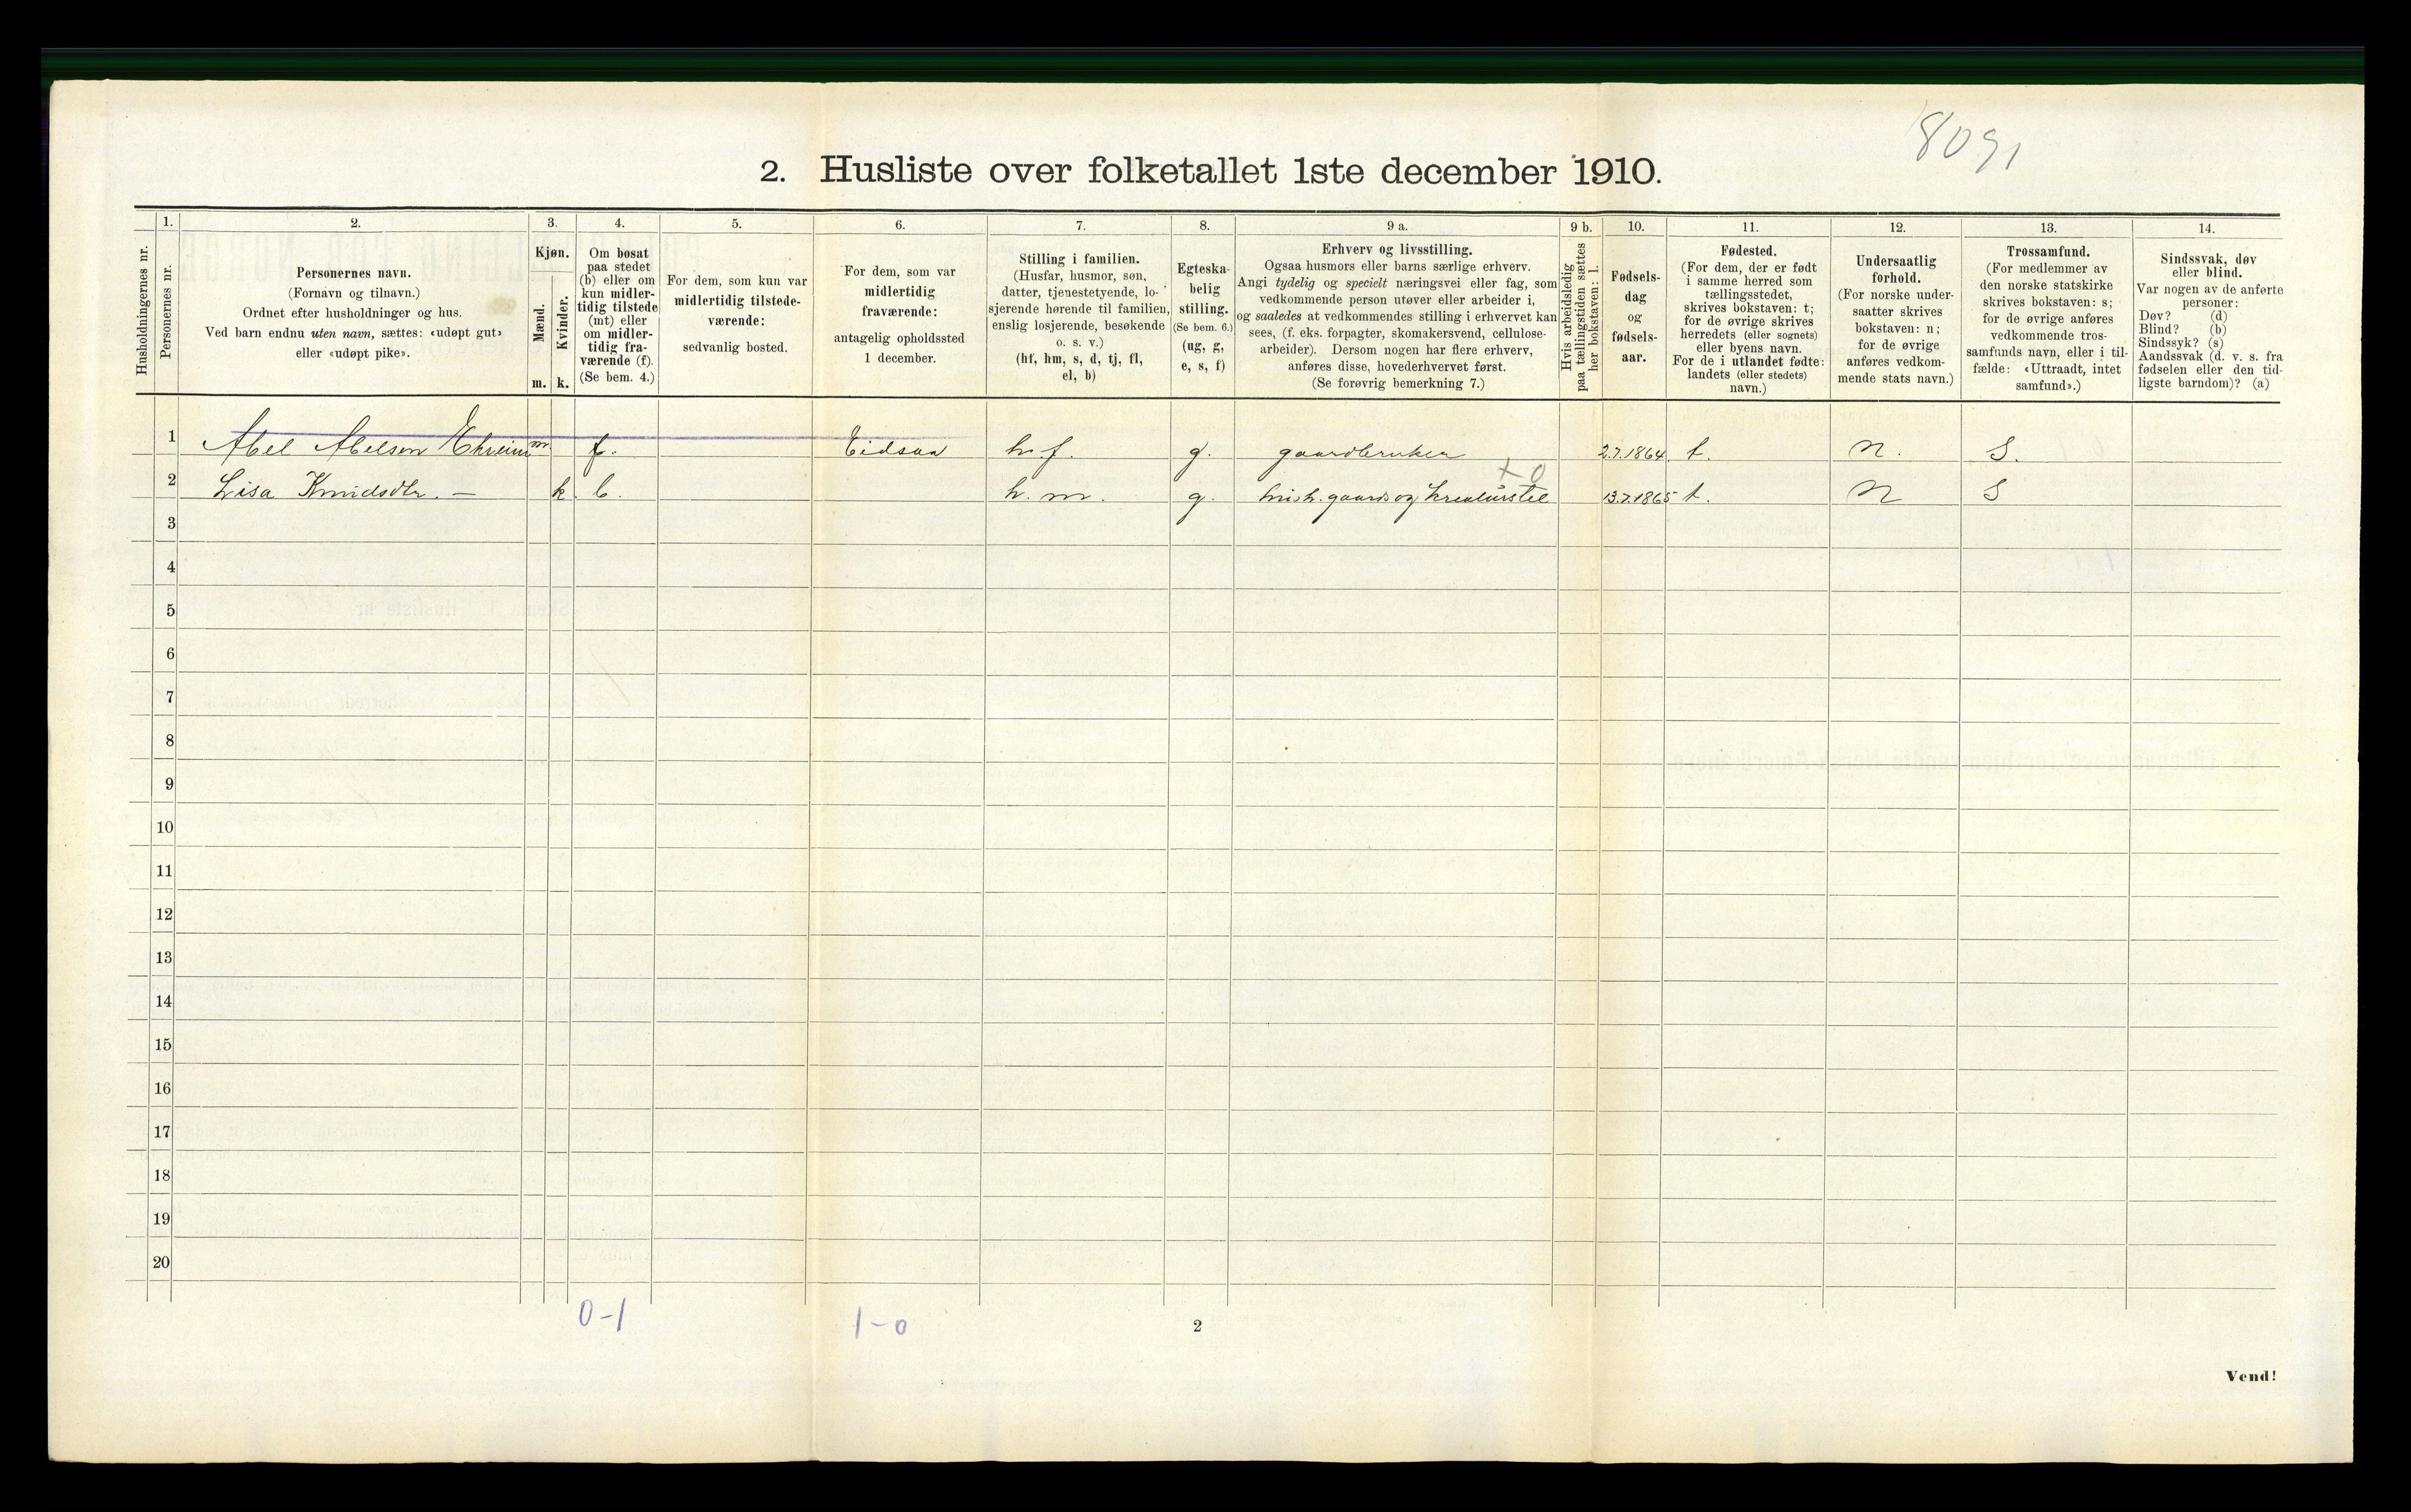 8091
2. Husliste over folketallet 1ste december 1910.
Husholdningernes nr.
1.
Personernes nr.
2.
Personernes navn.
(Fornavn og tilnavn.)
Ordnet efter husholdninger og hus.
Ved barn endnu uten navn, sættes: «udøpt gut»
eller «udøpt pike».
3.
Kjøn.
Mænd.
Kvinder.
m. k.
4.
Om bosat
paa stedet
(b) eller om
kun midler-
tidig tilstede
(mt) eller
om midler-
tidig fra-
værende (f).
(Se bem. 4.)
5.
For dem, som kun var
midlertidig tilstede-
værende:
sedvanlig bosted.
6.
For dem, som var
midlertidig
fraværende:
antagelig opholdssted
1 december.
7.
Stilling i familien.
(Husfar, husmor, søn,
datter, tjenestetyende, lo-
sjerende hørende til familien,
enslig losjerende, besøkende
o. s. v.)
(hf, hm, s, d, tj, fl,
el, b)
8.
Egteska-
belig
stilling.
(Se bem. 6.)
(ug, g,
e, s, f)
9 a.
Erhverv og livsstilling.
Ogsaa husmors eller barns særlige erhverv.
Angi tydelig og specielt næringsvei eller fag, som
vedkommende person utøver eller arbeider i,
og saaledes at vedkommendes stilling i erhvervet kan
sees, (f. eks. forpagter, skomakersvend, cellulose-
arbeider). Dersom nogen har flere erhverv,
anføres disse, hovederhvervet først.
(Se forøvrig bemerkning 7.)
9 b.
Hvis arbeidsledig
paa tællingstiden sættes
her bokstaven: l.
10.
Fødsels-
dag
og
fødsels-
aar.
11.
Fødested.
(For dem, der er født
i samme herred som
tællingsstedet,
skrives bokstaven: t;
for de øvrige skrives
herredets (eller sognets)
eller byens navn.
For de i utlandet fødte:
landets (eller stedets)
navn.)
12.
Undersaatlig
forhold.
(For norske under-
saatter skrives
bokstaven: n;
for de øvrige
anføres vedkom-
mende stats navn.)
13.
Trossamfund.
(For medlemmer av
den norske statskirke
skrives bokstaven: s;
for de øvrige anføres
vedkommende tros-
samfunds navn, eller i til-
fælde: «Uttraadt, intet
samfund».)
14.
Sindssvak, døv
eller blind.
Var nogen av de anførte
personer:
Døv? (d)
Blind? (b)
Sindssyk? (s)
Aandssvak (d. v. s. fra
fødselen eller den tid-
ligste barndom)? (a)
1 Abel Abelsen Ekreim m. f. Eidsaa h.f. g. gaardbruker 2.7.1864 t. n. S.
+ 0
2 Lisa Knudsdtr. — k. b. h. m. g. gaards og kreaturstel 13.7.1865 t. n S
3
4
5
6
7
8
9
10
11
12
13
14
15
16
17
18
19
20
0-1 1-0
2
Vend!